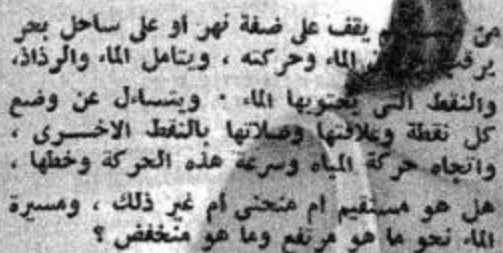 من يقف على ضفة نهر أو على ساحل بحر
يرقب الماء وحركته ، ويتامل الماء والرذاذ،
والنقط التى يحتويها الماء ٠ ويتساءل عن وضع
كل نقطة وعلاقتها وصلاتها بالنقط الاخــرى ،
واتجاه حركة المياه وسرعة هذه الحركة وخطها ،
هل هو مستقيم أم منحنى أم غير ذلك ، ومسيرة
الماء نحو ما هو مرتفع وما هو منخفض ؟